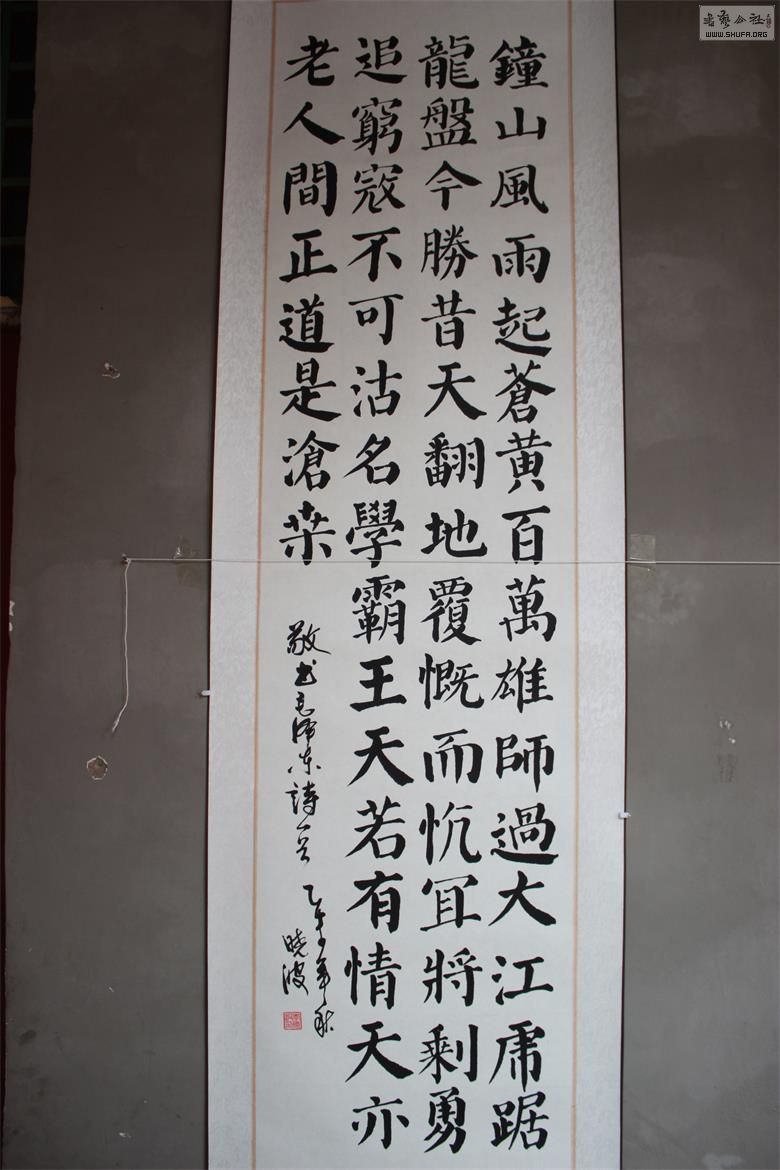 鐘山風雨起蒼黄百萬雄師過大江虎踞
龍盤今勝昔天翻地覆慨而忼冝將剩勇
追窮寇不可沽名學霸王天若有情天亦
老人間正道是滄桒
敬书毛泽东詩一首 年秋
曉波
書藝公社
WWW.SHUFA.ORG